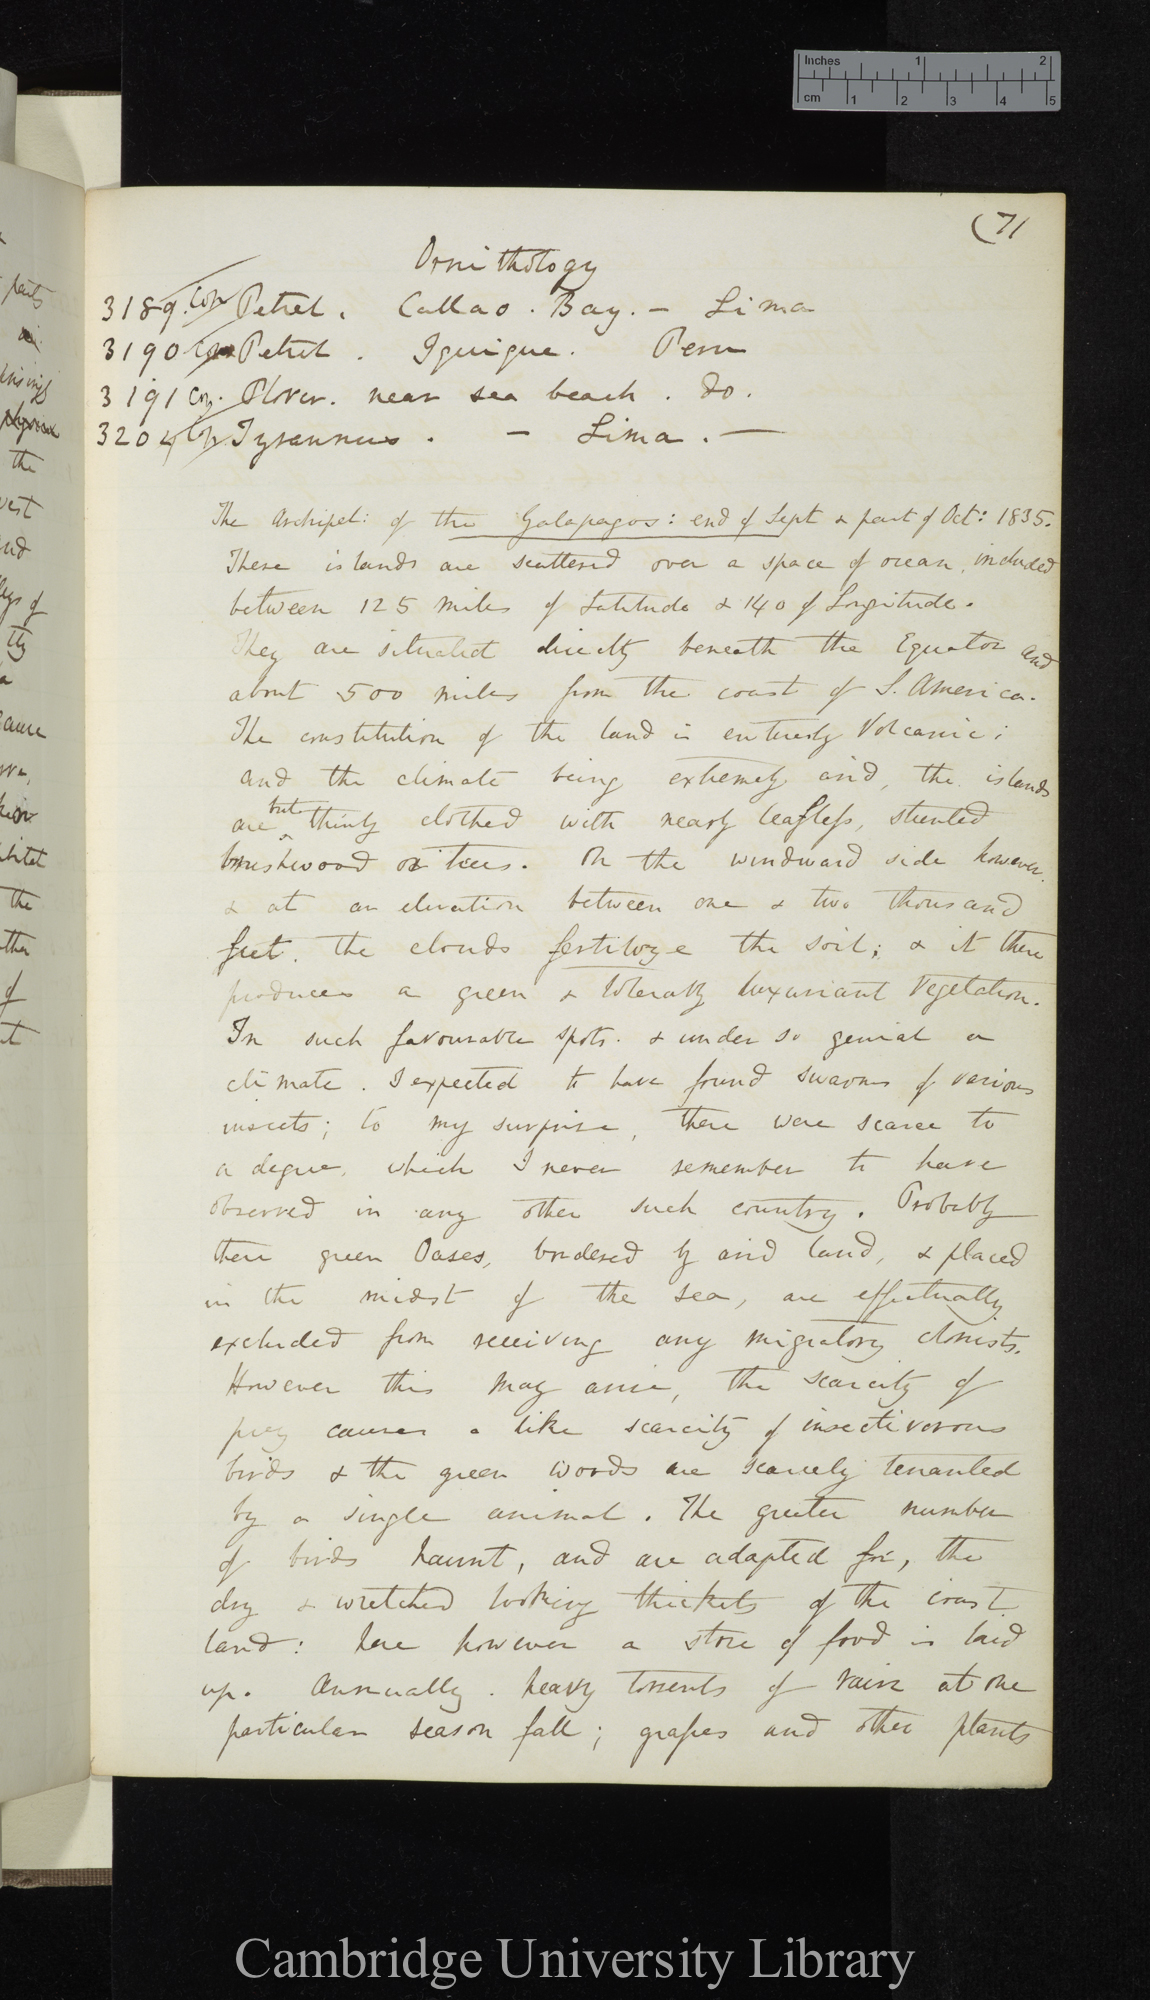 Inches 1 2
cm 1 2 3 4 5
(71
Ornithology
3189. Cop Petrel. Callao. Bay. — Lima
3190 Petrel. Iquique. Peru
3191 Cop. Plover. near sea beach. do.
3204 Cop Tyrannus. — Lima. —
The Archipel: of the Galapagos: end of Sept & part of Oct: 1835.
These islands are scattered over a space of ocean, included
between 125 miles of Latitude & 140 of Longitude.
They are situated directly beneath the Equator and
about 500 miles from the coast of S. America.
The constitution of the land is entirely Volcanic;
and the climate being extremely arid, the islands
are but thinly clothed with nearly leafless, stunted
brushwood or trees. On the windward side however,
& at an elevation between one & two thousand
feet, the clouds fertilize the soil; & it there
produces a green & tolerably luxuriant Vegetation.
In such favourable spots. & under so genial a
climate. I expected to have found swarms of various
insects; to my surprise, these were scarce to
a degree, which I never remember to have
observed in any other such country. Probably
these green Oases, bordered by arid land, & placed
in the midst of the sea, are effectually
excluded from receiving any migratory colonists.
However this may arise, the scarcity of
prey causes a like scarcity of insectivorous
birds & the green woods are scarcely tenanted
by a single animal. The greater number
of birds haunt, and are adapted for, the
dry & wretched looking thickets of the coast
land: here however a store of food is laid
up. Annually. heavy torrents of rain at one
particular season fall; grasses and other plants
Cambridge University Library